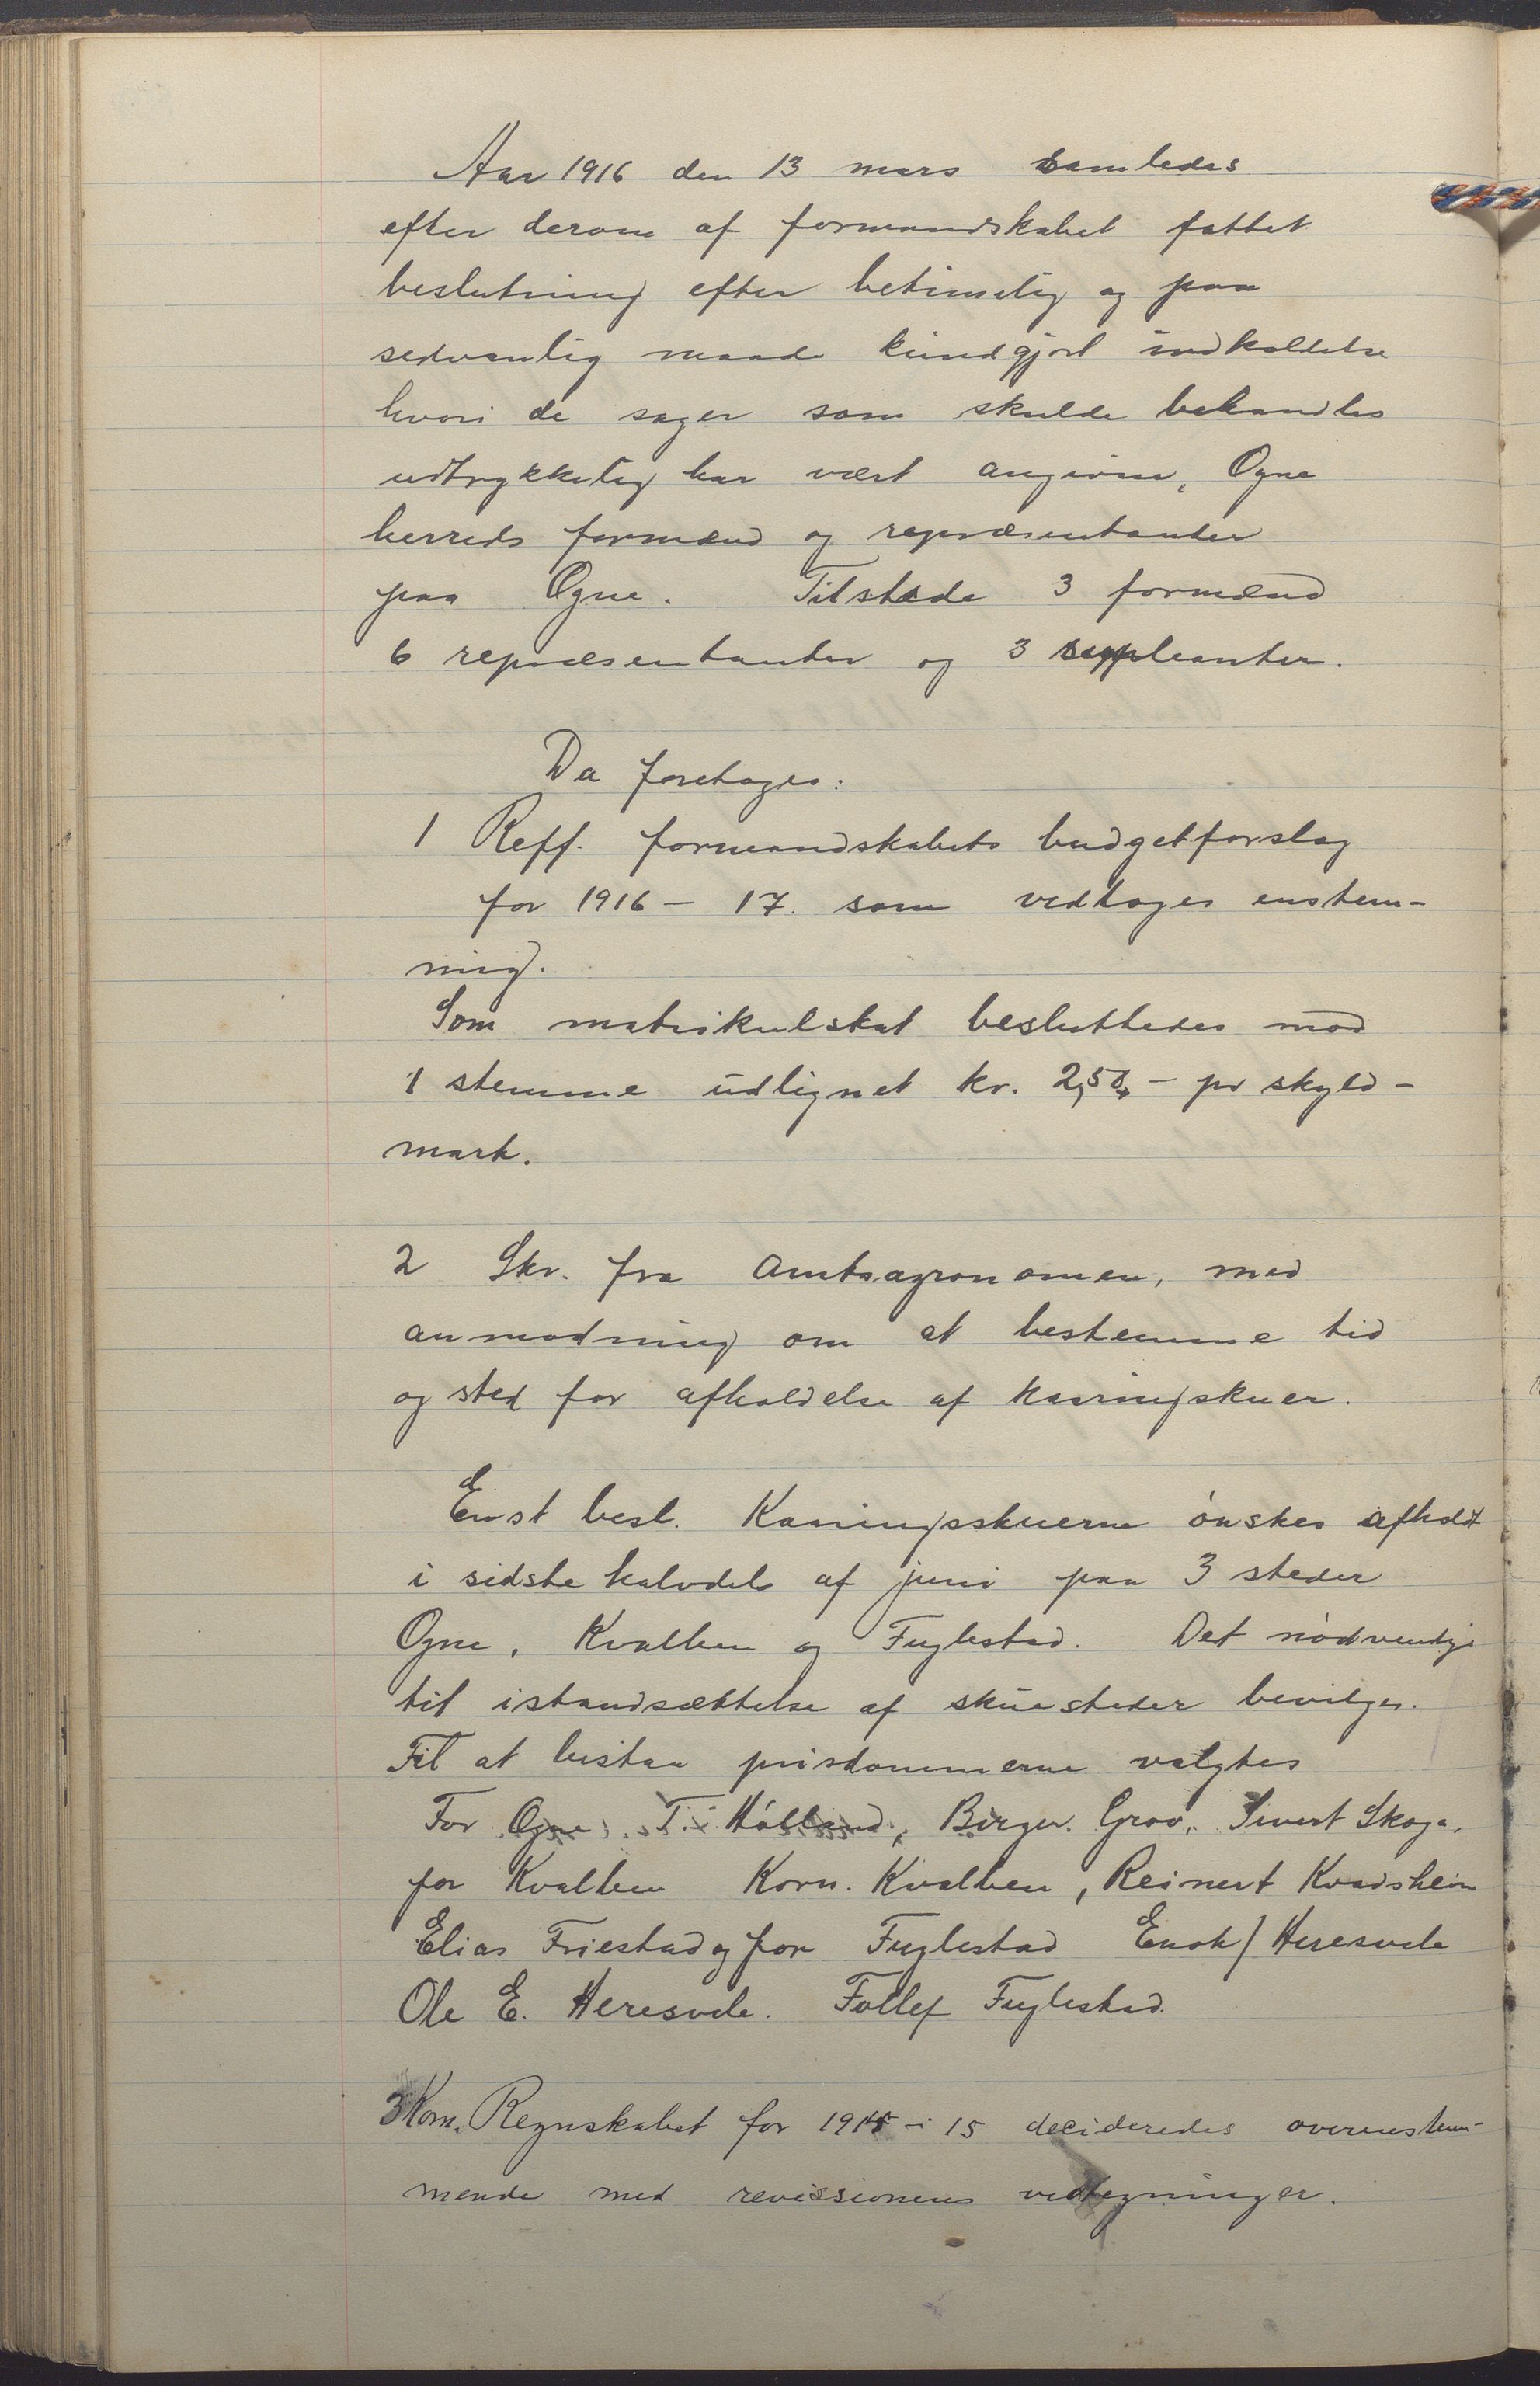 Aar 1916 den 13 mars samledes
efter derom af formandskabet fattet
beslutning efter betimelig og paa
sedvanlig maade kundgjort indkaldelse
hvori de sager som skulde behandles
udtrykkelig har vært angivne, Ogne
herreds formænd og repræsentanter
paa Ogne. Tilstede 3 formænd
6 repræsentanter og 3 suppleanter.
Da foretoges:
1 Reff. formandskabets budgetforslag
for 1916 - 17. som vedtoges enstem-
mig.
Som matrikulskat besluttedes mod
1 stemme udlignet kr. 2,50 - pr skyld-
mark.
2 Skr. fra Amtsagronomen, med
anmodning om at bestemme tid
og sted for afholdelse af kaaringskuer.
Enst besl. Kaaringsskuerne ønskes afholdt
i sidste halvdel af juni paa 3 steder
Ogne, Kvalben og Fuglestad. Det nødvendige
til istandsættelse af skuesteder bevilges.
Til at bistaa prisdommerne valgtes
For Ogne T. Hålland, Birger. Grov, Sivert Skoge,
for Kvalben Korn. Kvalben, Reinert Kvadsheim
Elias Friestad og for Fuglestad Enok Heresvele
Ole E. Heresvele. Tollef Fuglestad.
3 Kom. Regnskabet for 1914 - 15 decideredes overenstem-
mende med revissionens vedtegninger.